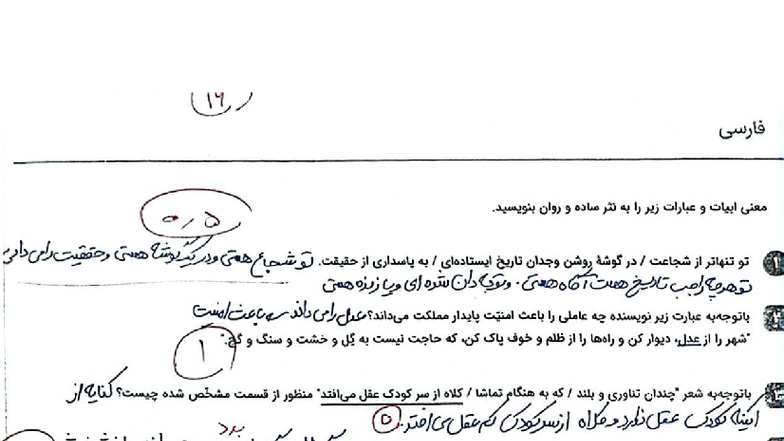 ۱۶
فارسی
معنی ابیات و عبارات زیر را به نثر ساده و روان بنویسید.
۰٫۵
تو تنهاتر از شجاعت / در گوشهٔ روشن وجدان تاریخ ایستاده‌ای / به پاسداری از حقیقت. تو شجاع هستی و در گوشه هستی و حقیقت را می دانی
تو هرچه تاریخ هست آگاه هستی. و تو شده ای و پا زنده هستی
باتوجه‌به عبارت زیر نویسنده چه عاملی را باعث امنیّت پایدار مملکت می‌داند؟ عدل را می داند باعث امنیت
"شهر را از عدل، دیوار کن و راه‌ها را از ظلم و خوف پاک کن، که حاجت نیست به گِل و خشت و سنگ و گچ."
۱
باتوجه‌به شعر "چندان تناوری و بلند / که به هنگام تماشا / کلاه از سر کودک عقل می‌افتد" منظور از قسمت مشخّص شده چیست؟ کنایه از
اینکه کودک عقل ندارد و کلاه از سر کودک کم عقل می افتد.